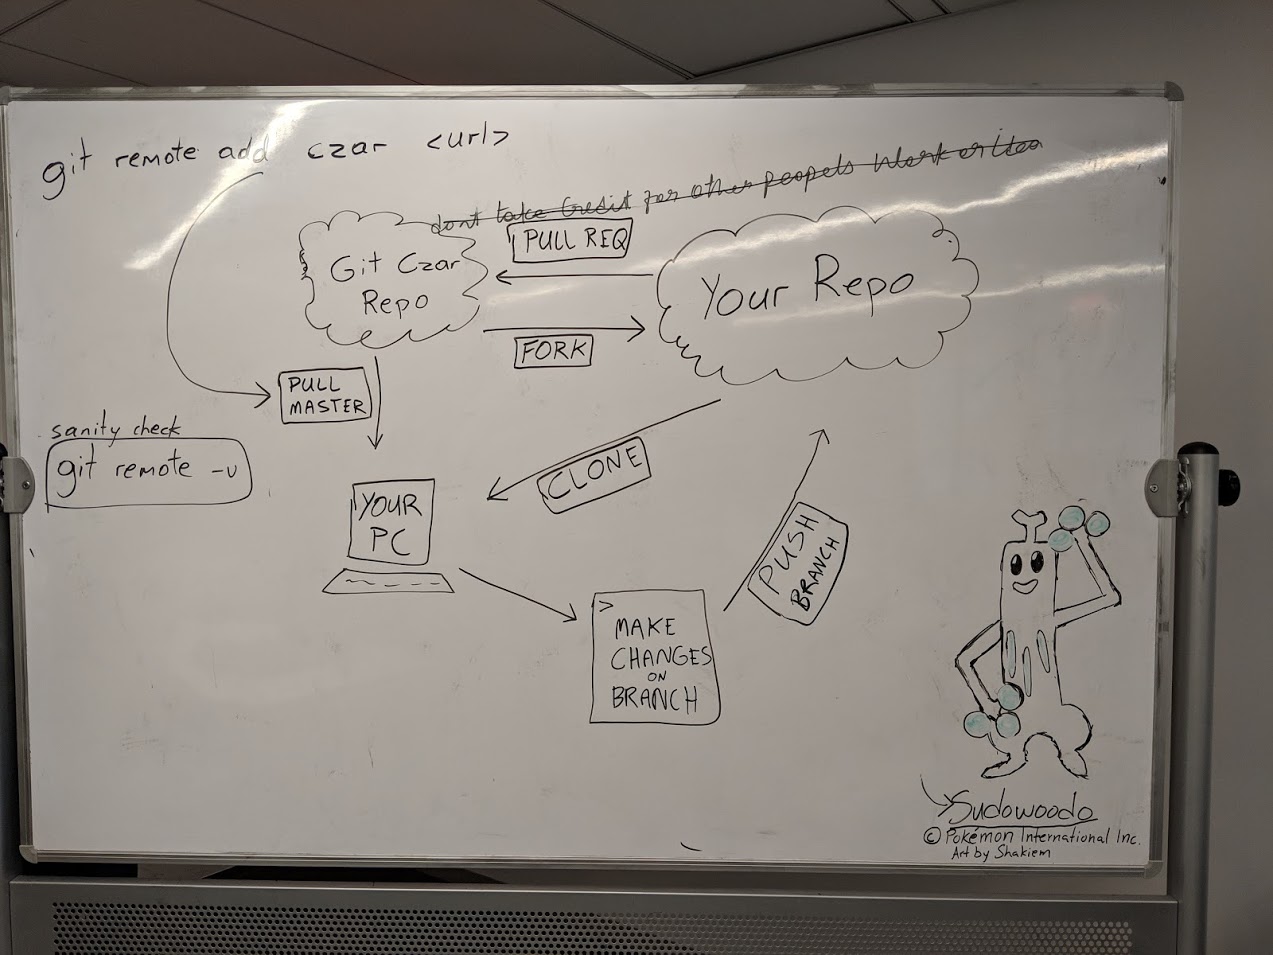 git remote add czar <url>
dont take Credit for other peopels Work or idea
PULL REQ
Git Czar
Repo
Your Repo
FORK
PULL
MASTER
sanity check
git remote -v
CLONE
YOUR
PC
PUSH
BRANCH
>
MAKE
CHANGES
ON
BRANCH
Sudowoodo
© Pokémon International Inc.
Art by Shakiem